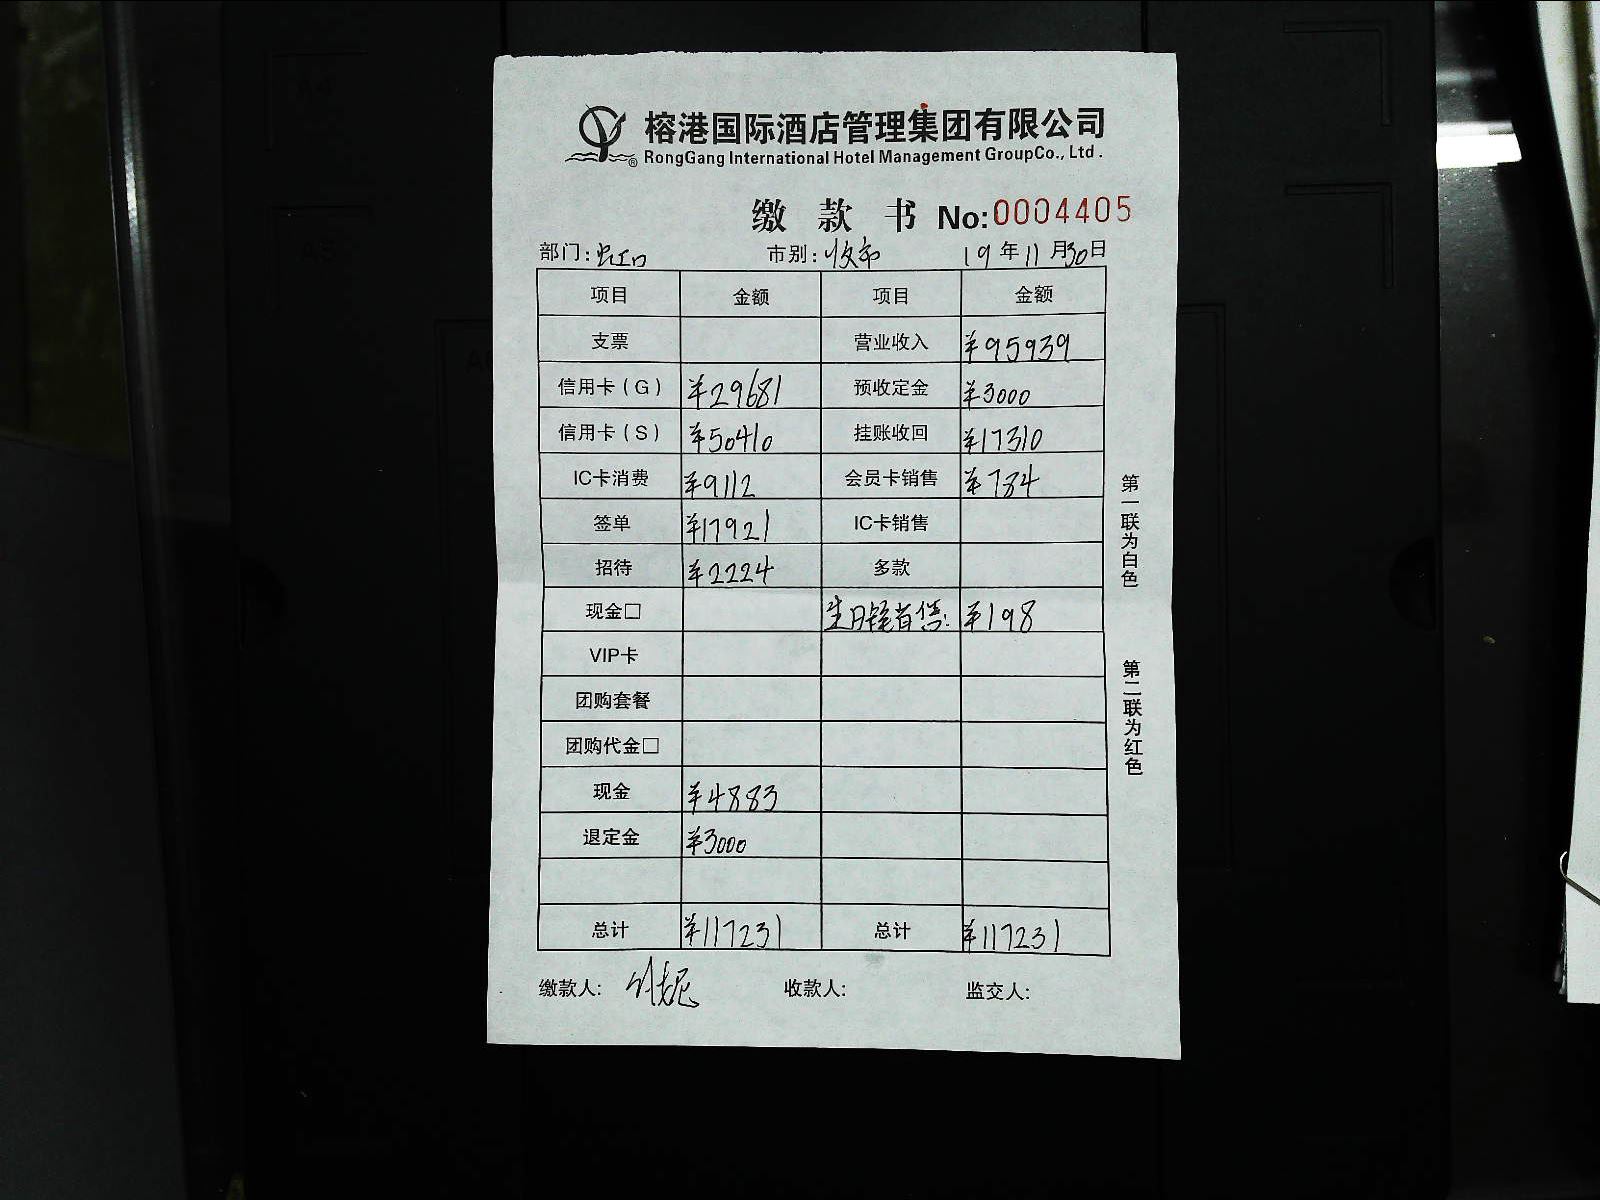 榕港国际酒店管理集团有限公司
RongGang International Hotel Management GroupCo., Ltd.
缴 款 书 No:0004405
部门:虹口 市别:收市 19年11月30日
项目 金额 项目 金额
支票 营业收入 ¥95939
信用卡(G) ¥29681 预收定金 ¥3000
信用卡(S) ¥50410 挂账收回 ¥17310
IC卡消费 ¥9112 会员卡销售 ¥784
签单 ¥17921 IC卡销售
招待 ¥2224 多款
现金□ 生日 售: ¥198
VIP卡
团购套餐
团购代金□
现金 ¥4883
退定金 ¥3000
总计 ¥117231 总计 ¥117231
缴款人: 收款人: 监交人:
第一联为白色
第二联为红色